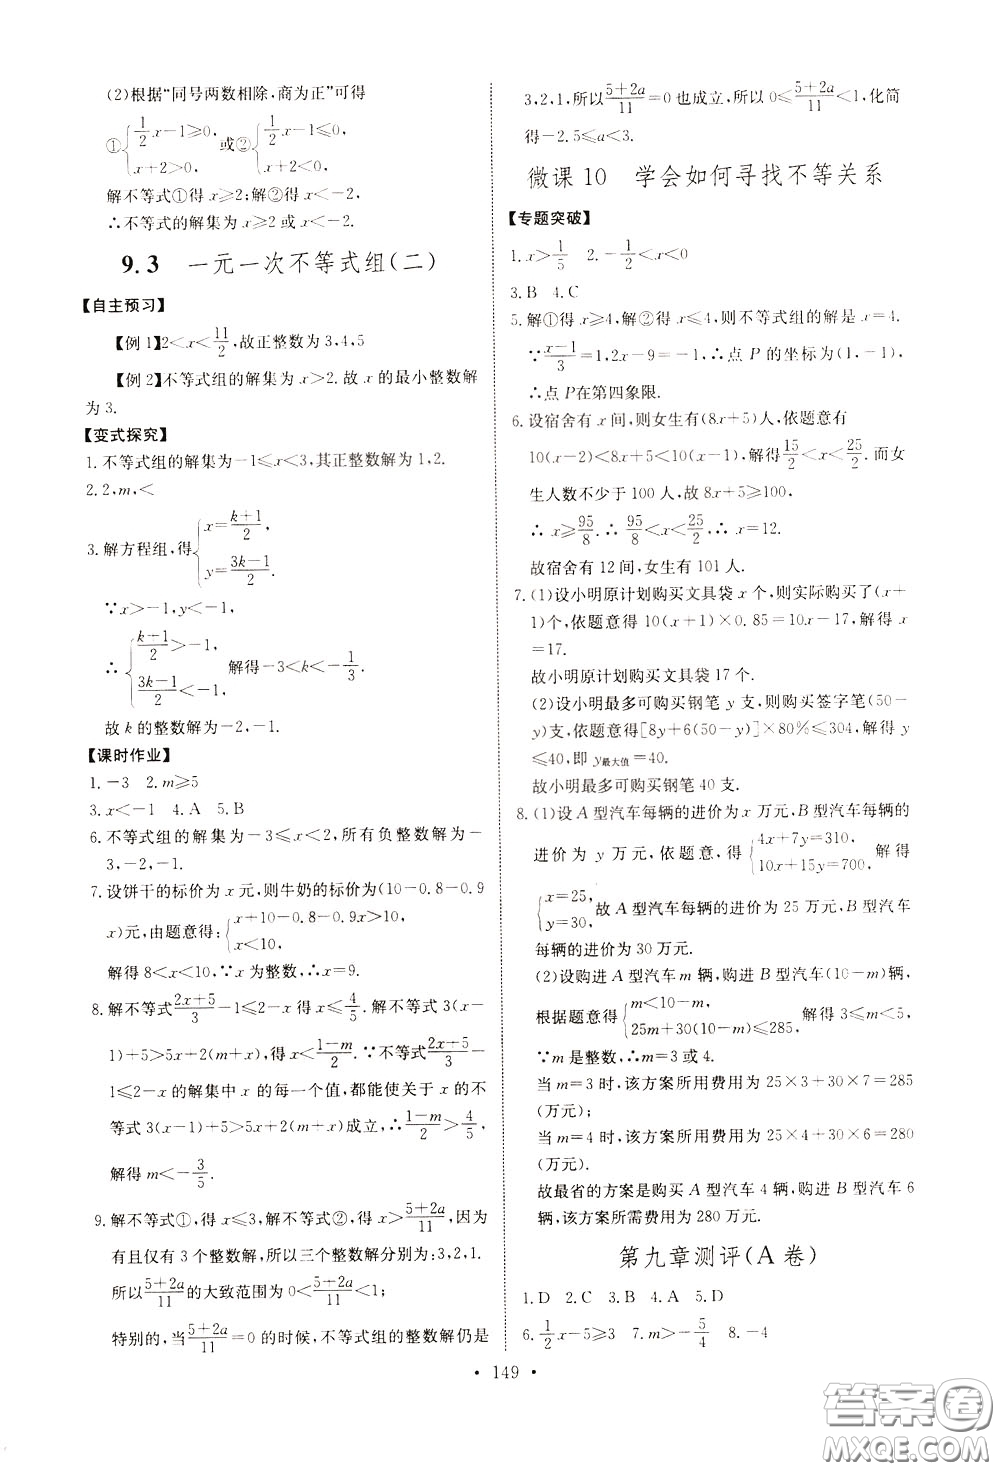 (2)根据“同号两数相除,商为正”可得
①{1/2 x-1≥0, x+2>0; 或②{1/2 x-1≤0, x+2<0.
解不等式①得 x≥2;解②得 x<-2.
∴不等式的解集为 x≥2 或 x<-2.
9.3 一元一次不等式组(二)
【自主预习】
【例 1】2<x<11/2,故正整数为 3,4,5
【例 2】不等式组的解集为 x>2.故 x 的最小整数解
为 3.
【变式探究】
1.不等式组的解集为-1≤x<3,其正整数解为 1,2.
2.2,m,<
3.解方程组,得{x=(k+1)/2, y=(3k-1)/2.
∵x>-1,y<-1,
∴{(k+1)/2>-1, (3k-1)/2<-1, 解得-3<k<-1/3.
故 k 的整数解为-2,-1.
【课时作业】
1.-3 2.m≥5
3.x<-1 4.A 5.B
6.不等式组的解集为-3≤x<2,所有负整数解为-
3,-2,-1.
7.设饼干的标价为 x 元,则牛奶的标价为(10-0.8-0.9
x)元,由题意得:{x+10-0.8-0.9x>10, x<10,
解得 8<x<10,∵x 为整数,∴x=9.
8.解不等式(2x+5)/3-1≤2-x 得 x≤4/5.解不等式 3(x-
1)+5>5x+2(m+x),得 x<(1-m)/2.∵不等式(2x+5)/3-
1≤2-x 的解集中 x 的每一个值,都能使关于 x 的不
等式 3(x-1)+5>5x+2(m+x)成立,∴(1-m)/2>4/5,
解得 m<-3/5.
9.解不等式①,得 x≤3,解不等式②,得 x>(5+2a)/11,因为
有且仅有 3 个整数解,所以三个整数解分别为:3,2,1.
所以(5+2a)/11的大致范围为 0<(5+2a)/11<1;
特别的,当(5+2a)/11=0 的时候,不等式组的整数解仍是
3,2,1,所以(5+2a)/11=0 也成立,所以 0≤(5+2a)/11<1,化简
得-2.5≤a<3.
微课 10 学会如何寻找不等关系
【专题突破】
1.x>1/5 2.-1/2<x<0
3.B 4.C
5.解①得 x≥4,解②得 x≤4,则不等式组的解是 x=4.
∵(x-1)/3=1,2x-9=-1,∴点 P 的坐标为(1,-1),
∴点 P在第四象限.
6.设宿舍有 x 间,则女生有(8x+5)人,依题意有
10(x-2)<8x+5<10(x-1),解得15/2<x<25/2.而女
生人数不少于 100 人,故 8x+5≥100,
∴x≥95/8.∴95/8<x<25/2,∴x=12.
故宿舍有 12 间,女生有 101 人.
7.(1)设小明原计划购买文具袋 x 个,则实际购买了(x+
1)个,依题意得 10(x+1)×0.85=10x-17,解得 x
=17.
故小明原计划购买文具袋 17 个.
(2)设小明最多可购买钢笔 y 支,则购买签字笔(50-
y)支,依题意得[8y+6(50-y)]×80%≤304,解得 y
≤40,即 y最大值=40.
故小明最多可购买钢笔 40 支.
8.(1)设 A 型汽车每辆的进价为 x 万元,B 型汽车每辆的
进价为 y 万元,依题意,得{4x+7y=310, 10x+15y=700, 解得
{x=25, y=30, 故 A 型汽车每辆的进价为 25 万元,B 型汽车
每辆的进价为 30 万元.
(2)设购进 A 型汽车 m 辆,购进 B 型汽车(10-m)辆,
根据题意得{m<10-m, 25m+30(10-m)≤285, 解得 3≤m<5,
∵m 是整数,∴m=3 或 4.
当 m=3 时,该方案所用费用为 25×3+30×7=285
(万元);
当 m=4 时,该方案所用费用为 25×4+30×6=280
(万元).
故最省的方案是购买 A 型汽车 4 辆,购进 B 型汽车 6
辆,该方案所需费用为 280 万元.
第九章测评(A 卷)
1.D 2.C 3.B 4.A 5.D
6.1/2 x-5≥3 7.m>-5/4 8.-4
• 149 •
答案圈
MXQE.COM